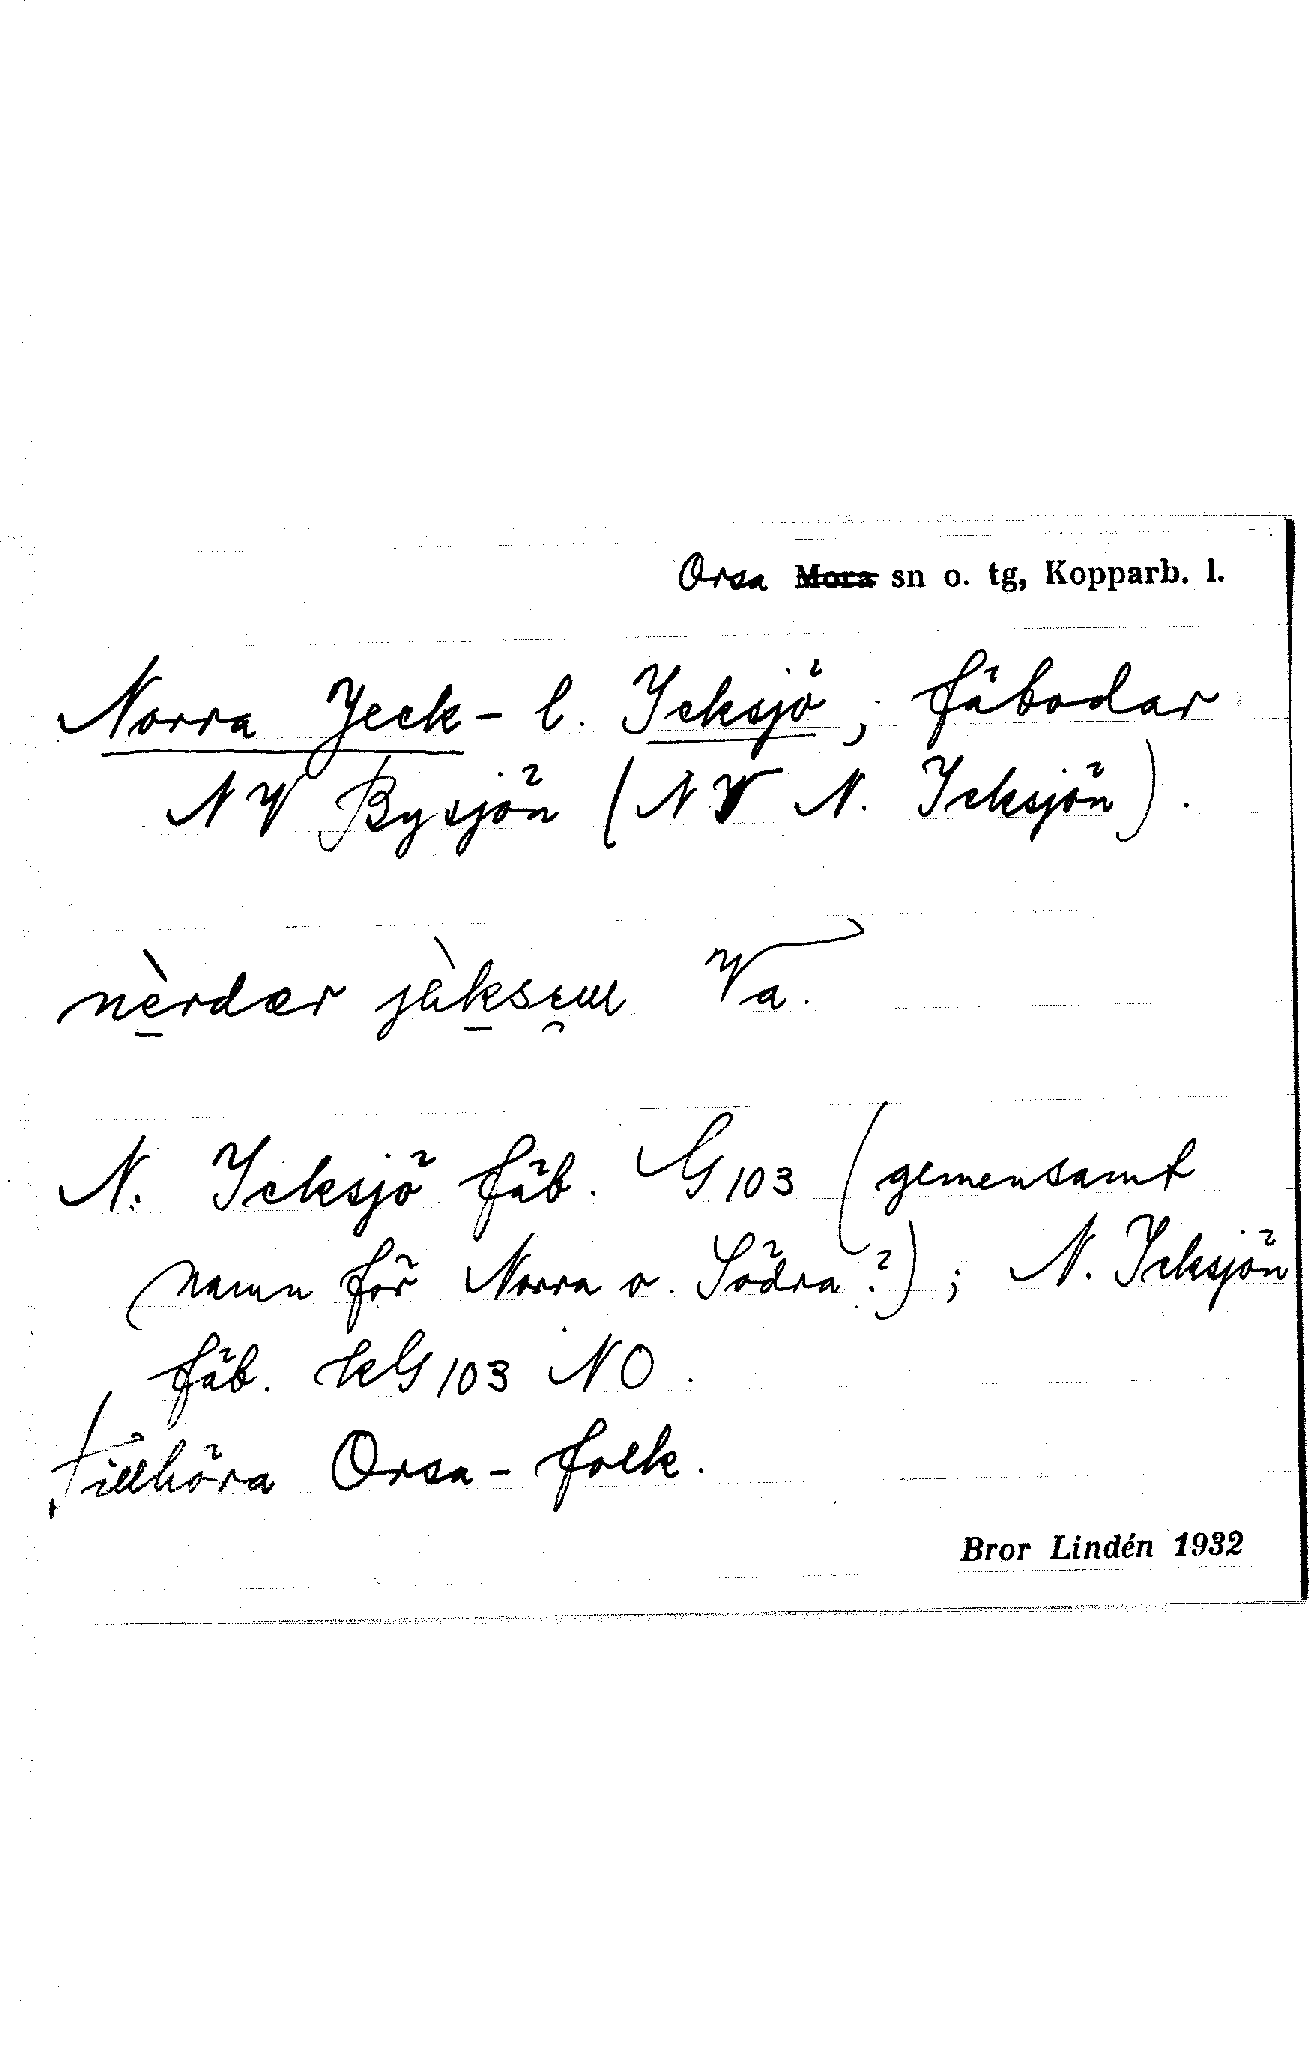 Orsa Mora sn o. tg, Kopparb. l.
Norra Jeck- l. Icksjö, fäbodar
NV Bysjön (NV N. Icksjön).
Va.
N. Icksjö fäb. G103 (gemensamt
namn för Norra o. Södra?); N. Icksjön
fäb. kG103 NO.
tillhöra Orsa-folk.
Bror Lindén 1932